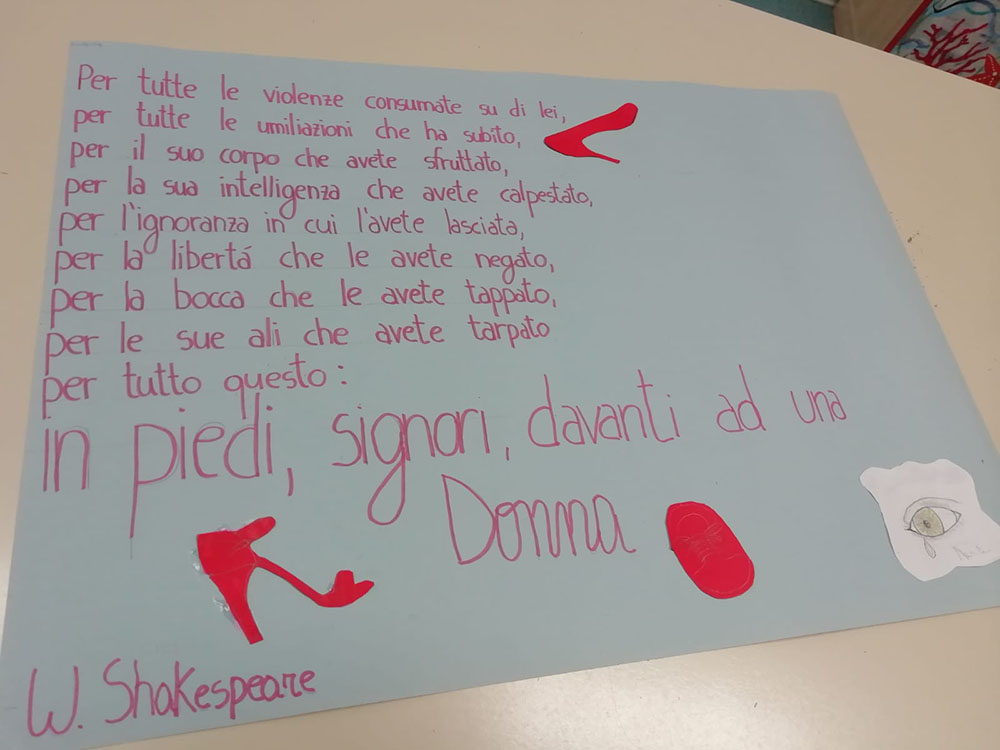 Per tutte le violenze consumate su di lei,
per tutte le umiliazioni che ha subito,
per il suo corpo che avete sfruttato,
per la sua intelligenza che avete calpestato,
per l'ignoranza in cui l'avete lasciata,
per la libertá che le avete negato,
per la bocca che le avete tappato,
per le sue ali che avete tarpato
per tutto questo:
in piedi, signori, davanti ad una
Donna
W. Shakespeare